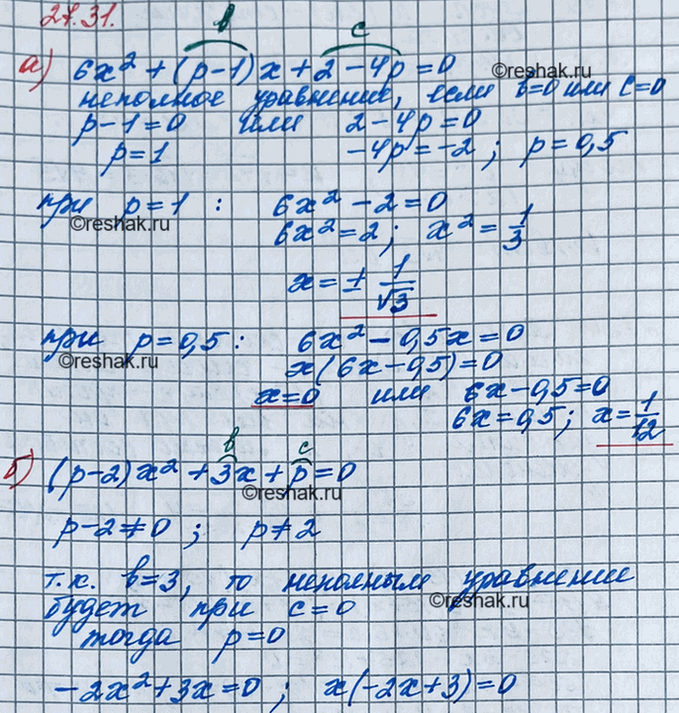 27.31.
b c
а) 6x² + (p-1)x + 2 - 4p = 0
©reshak.ru
неполное уравнение, если b=0 или c=0
p-1=0 или 2-4p=0
p=1 -4p=-2; p=0,5
при p=1: 6x²-2=0
©reshak.ru
6x²=2; x²=1/3
x=± 1/√3
при p=0,5: 6x²-0,5x=0
©reshak.ru
x(6x-0,5)=0
x=0 или 6x-0,5=0
6x=0,5; x=1/12
b c
б) (p-2)x²+3x+p=0
©reshak.ru
p-2≠0; p≠2
т.к. b=3, то неполным уравнение
будет при c=0
©reshak.ru
тогда p=0
-2x²+3x=0; x(-2x+3)=0